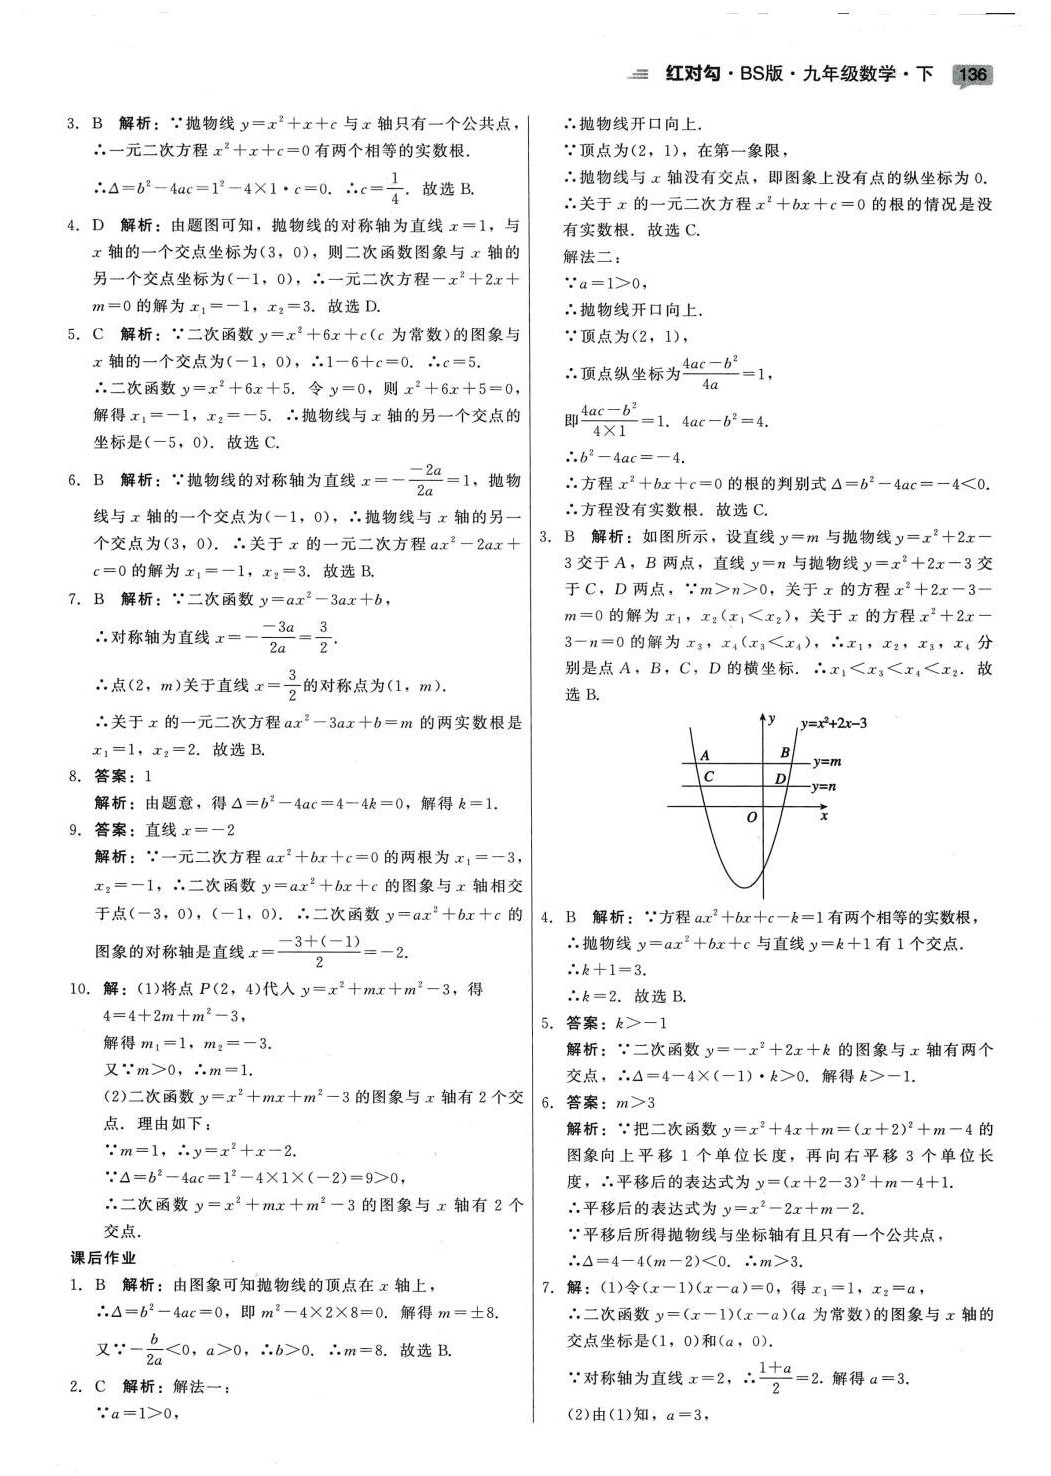 红对勾·BS版·九年级数学·下 136
3. B 解析：∵抛物线 y=x²+x+c 与 x 轴只有一个公共点，
∴一元二次方程 x²+x+c=0 有两个相等的实数根.
∴Δ=b²-4ac=1²-4×1·c=0. ∴c=1/4. 故选 B.
4. D 解析：由题图可知，抛物线的对称轴为直线 x=1，与
x 轴的一个交点坐标为(3，0)，则二次函数图象与 x 轴的
另一个交点坐标为(-1，0)，∴一元二次方程-x²+2x+
m=0 的解为 x₁=-1，x₂=3. 故选 D.
5. C 解析：∵二次函数 y=x²+6x+c(c 为常数)的图象与
x 轴的一个交点为(-1，0)，∴1-6+c=0. ∴c=5.
∴二次函数 y=x²+6x+5. 令 y=0，则 x²+6x+5=0，
解得 x₁=-1，x₂=-5. ∴抛物线与 x 轴的另一个交点的
坐标是(-5，0). 故选 C.
6. B 解析：∵抛物线的对称轴为直线 x=-(-2a)/(2a)=1，抛物
线与 x 轴的一个交点为(-1，0)，∴抛物线与 x 轴的另一
个交点为(3，0). ∴关于 x 的一元二次方程 ax²-2ax+
c=0 的解为 x₁=-1，x₂=3. 故选 B.
7. B 解析：∵二次函数 y=ax²-3ax+b，
∴对称轴为直线 x=-(-3a)/(2a)=3/2.
∴点(2，m)关于直线 x=3/2的对称点为(1，m).
∴关于 x 的一元二次方程 ax²-3ax+b=m 的两实数根是
x₁=1，x₂=2. 故选 B.
8. 答案：1
解析：由题意，得 Δ=b²-4ac=4-4k=0，解得 k=1.
9. 答案：直线 x=-2
解析：∵一元二次方程 ax²+bx+c=0 的两根为 x₁=-3，
x₂=-1，∴二次函数 y=ax²+bx+c 的图象与 x 轴相交
于点(-3，0)，(-1，0). ∴二次函数 y=ax²+bx+c 的
图象的对称轴是直线 x=(-3+(-1))/2=-2.
10. 解：(1)将点 P(2，4)代入 y=x²+mx+m²-3，得
4=4+2m+m²-3，
解得 m₁=1，m₂=-3.
又∵m>0，∴m=1.
(2)二次函数 y=x²+mx+m²-3 的图象与 x 轴有 2 个交
点. 理由如下：
∵m=1，∴y=x²+x-2.
∵Δ=b²-4ac=1²-4×1×(-2)=9>0，
∴二次函数 y=x²+mx+m²-3 的图象与 x 轴有 2 个
交点.
课后作业
1. B 解析：由图象可知抛物线的顶点在 x 轴上，
∴Δ=b²-4ac=0，即 m²-4×2×8=0. 解得 m=±8.
又∵-b/(2a)<0，a>0，∴b>0. ∴m=8. 故选 B.
2. C 解析：解法一：
∵a=1>0，
∴抛物线开口向上.
∵顶点为(2，1)，在第一象限，
∴抛物线与 x 轴没有交点，即图象上没有点的纵坐标为 0.
∴关于 x 的一元二次方程 x²+bx+c=0 的根的情况是没
有实数根. 故选 C.
解法二：
∵a=1>0，
∴抛物线开口向上.
∵顶点为(2，1)，
∴顶点纵坐标为(4ac-b²)/(4a)=1，
即(4ac-b²)/(4×1)=1. 4ac-b²=4.
∴b²-4ac=-4.
∴方程 x²+bx+c=0 的根的判别式 Δ=b²-4ac=-4<0.
∴方程没有实数根. 故选 C.
3. B 解析：如图所示，设直线 y=m 与抛物线 y=x²+2x-
3 交于 A，B 两点，直线 y=n 与抛物线 y=x²+2x-3 交
于 C，D 两点，∵m>n>0，关于 x 的方程 x²+2x-3-
m=0 的解为 x₁，x₂(x₁<x₂)，关于 x 的方程 x²+2x-
3-n=0 的解为 x₃，x₄(x₃<x₄)，∴x₁，x₂，x₃，x₄ 分
别是点 A，B，C，D 的横坐标. ∴x₁<x₃<x₄<x₂. 故
选 B.
y y=x²+2x-3
A B y=m
C D y=n
O x
4. B 解析：∵方程 ax²+bx+c-k=1 有两个相等的实数根，
∴抛物线 y=ax²+bx+c 与直线 y=k+1 有 1 个交点.
∴k+1=3.
∴k=2. 故选 B.
5. 答案：k>-1
解析：∵二次函数 y=-x²+2x+k 的图象与 x 轴有两个
交点，∴Δ=4-4×(-1)·k>0. 解得 k>-1.
6. 答案：m>3
解析：∵把二次函数 y=x²+4x+m=(x+2)²+m-4 的
图象向上平移 1 个单位长度，再向右平移 3 个单位长
度，∴平移后的表达式为 y=(x+2-3)²+m-4+1.
∴平移后的表达式为 y=x²-2x+m-2.
∵平移后所得抛物线与坐标轴有且只有一个公共点，
∴Δ=4-4(m-2)<0. ∴m>3.
7. 解：(1)令(x-1)(x-a)=0，得 x₁=1，x₂=a，
∴二次函数 y=(x-1)(x-a)(a 为常数)的图象与 x 轴的
交点坐标是(1，0)和(a，0).
∵对称轴为直线 x=2，∴(1+a)/2=2. 解得 a=3.
(2)由(1)知，a=3，